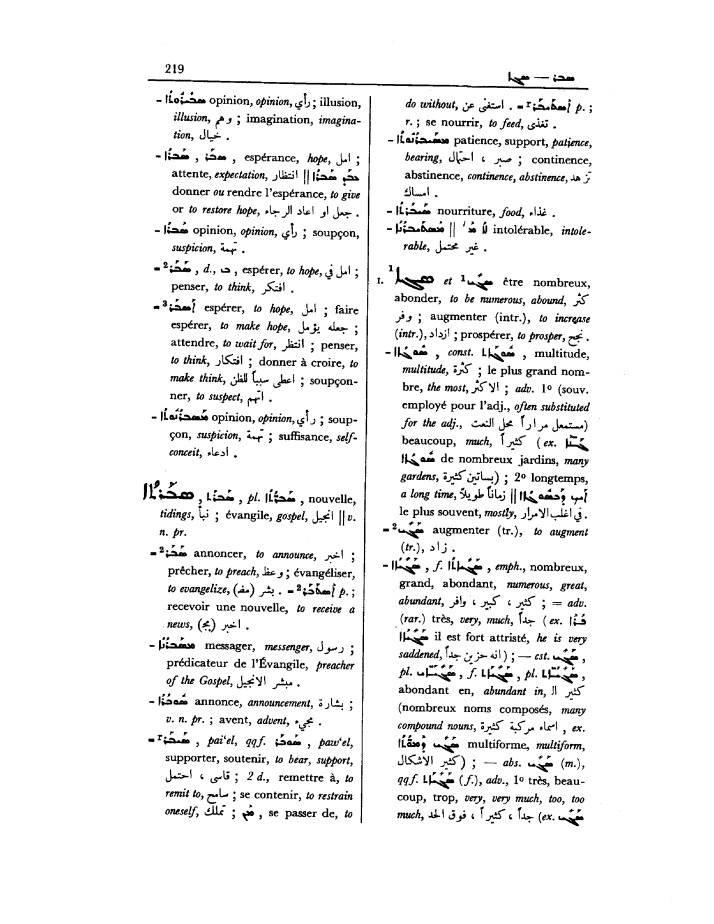 219
ܣܒܪ — ܣܓܐ
opinion, opinion, رأي ; illusion,
illusion, وهم ; imagination, imagina-
tion, خيال .
– ܣܒܪܐ , ܣܒܪ , espérance, hope, امل ;
attente, expectation, انتظار ||
donner ou rendre l'espérance, to give
or to restore hope, جعل او اعاد الرجاء .
– ܣܒܪܐ opinion, opinion, رأي ; soupçon,
suspicion, تهمة .
– ² ܣܒܪ , d., ܒ , espérer, to hope, امل في ;
penser, to think, افتكر .
– ³ ܐܣܒܪ espérer, to hope, امل ; faire
espérer, to make hope, جعله يؤمل ;
attendre, to wait for, انتظر ; penser,
to think, افتكار ; donner à croire, to
make think, اعطى سبباً للظن ; soupçon-
ner, to suspect, اتهم .
– ܡܣܒܪܢܘܬܐ opinion, opinion, رأي ; soup-
çon, suspicion, تهمة ; suffisance, self-
conceit, ادعاء .
ܣܒܪܬܐ , pl. , nouvelle,
tidings, نبأ ; évangile, gospel, انجيل || v.
n. pr.
– ² ܣܒܪ annoncer, to announce, اخبر ;
prêcher, to preach, وعظ ; évangéliser,
to evangelize, بشر (مف) . – ² ܐܣܬܒܪ p. ;
recevoir une nouvelle, to receive a
news, اخبر (مج) .
– ܡܣܒܪܢܐ messager, messenger, رسول ;
prédicateur de l'Évangile, preacher
of the Gospel, مبشر الانجيل .
– ܣܘܒܪܐ annonce, announcement, بشارة ;
v. n. pr. ; avent, advent, مجيء .
– ܣܝܒܪ , pai'el, qqf. ܣܘܒܪ , paw'el,
supporter, soutenir, to bear, support,
قاسى ، احتمل ; 2 d., remettre à, to
remit to, سامح ; se contenir, to restrain
oneself, تملك ; ܡܢ , se passer de, to
do without, استغنى عن . – p. ;
r. ; se nourrir, to feed, تغذى .
– ܡܣܝܒܪܢܘܬܐ patience, support, patience,
bearing, صبر ، احتمال ; continence,
abstinence, continence, abstinence, تزهد ،
امساك .
– ܣܝܒܪܬܐ nourriture, food, غذاء .
– || ܠܐ intolérable, intole-
rable, غير محتمل .
1. ¹ ܣܓܐ et ¹ ܣܓܝ être nombreux,
abonder, to be numerous, abound, كثر ،
وفر ; augmenter (intr.), to increase
(intr.), ازداد ; prospérer, to prosper, نجح .
– ܣܘܓܐܐ , const. ܣܘܓܐܬ , multitude,
multitude, كثرة ; le plus grand nom-
bre, the most, الاكثر ; adv. 1º (souv.
employé pour l'adj., often substituted
for the adj., مستعمل مراراً محل النعت)
beaucoup, much, كثيراً (ex.
de nombreux jardins, many
gardens, بساتين كثيرة) ; 2º longtemps,
a long time, زماناً طويلاً ||
le plus souvent, mostly, في اغلب الامرار .
– ² ܣܓܝ augmenter (tr.), to augment
(tr.), زاد .
– ܣܓܝܐܐ , f. ܣܓܝܐܬܐ , emph., nombreux,
grand, abondant, numerous, great,
abundant, كثير ، كبير ، وافر ; = adv.
(rar.) très, very, much, جداً (ex.
il est fort attristé, he is very
saddened, انه حزين جداً) ; — cst. ,
pl. , f. , pl. ,
abondant en, abundant in, كثير ال
(nombreux noms composés, many
compound nouns, اسماء مركبة كثيرة , ex.
multiforme, multiform,
كثير الاشكال) ; — abs. ܣܓܝ (m.),
qqf. (f.), adv., 1º très, beau-
coup, trop, very, very much, too, too
much, جداً ، كثيراً ، فوق الحد (ex. ܣܓܝ